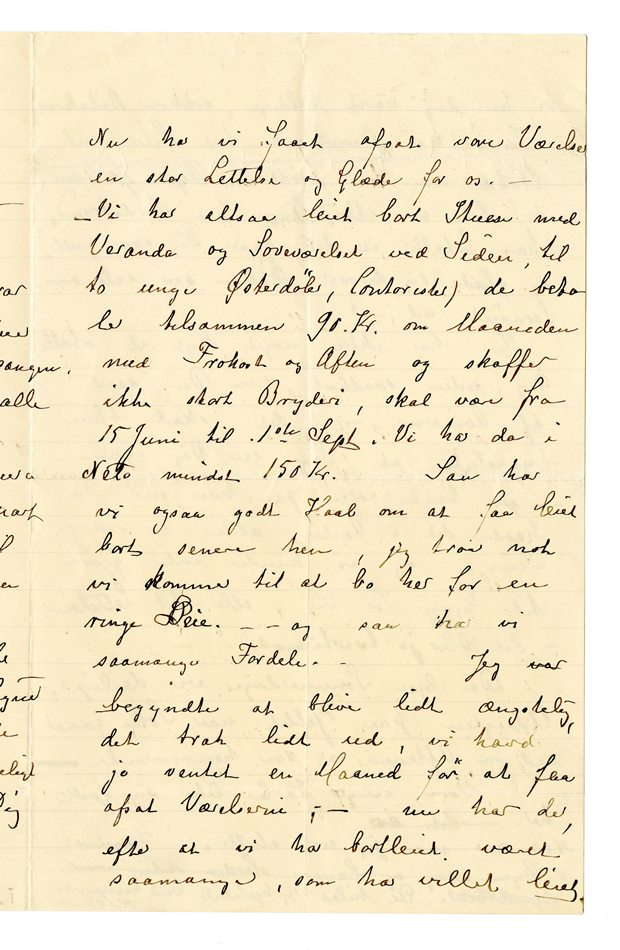 Nu ha vi faaet afsat vore Værelse
en stor Lettelse og Glæde for os. —
— Vi har altsaa leiet bort Stuen med
Veranda og Soveværelset ved Siden, til
to unge Østerdöler, Contorister) de beta
le tilsammen 90. Kr. om Maaneden
med Frokost og Aften og skaffer
ikke stort Bryderi, skal være fra
15 Juni til 1ste Sept. Vi ha da i
Neto mindst 150 Kr. Saa har
vi ogsaa godt Haab om at faa leiet
bort senere hen, jeg troe nok
vi komme til at bo her for en
ringe Leie. — — og saa ha vi
saamange Fordele. - Jeg var
begyndte at blive lidt ængstelig,
det trak lidt ud, vi havd
jo ventet en Maaned før at faa
afsat Værelserne, — nu har de,
efte at vi ha bortleiet, været
saamange, som ha villet leiet.
ar
sangen,
alle
l
e
Dig